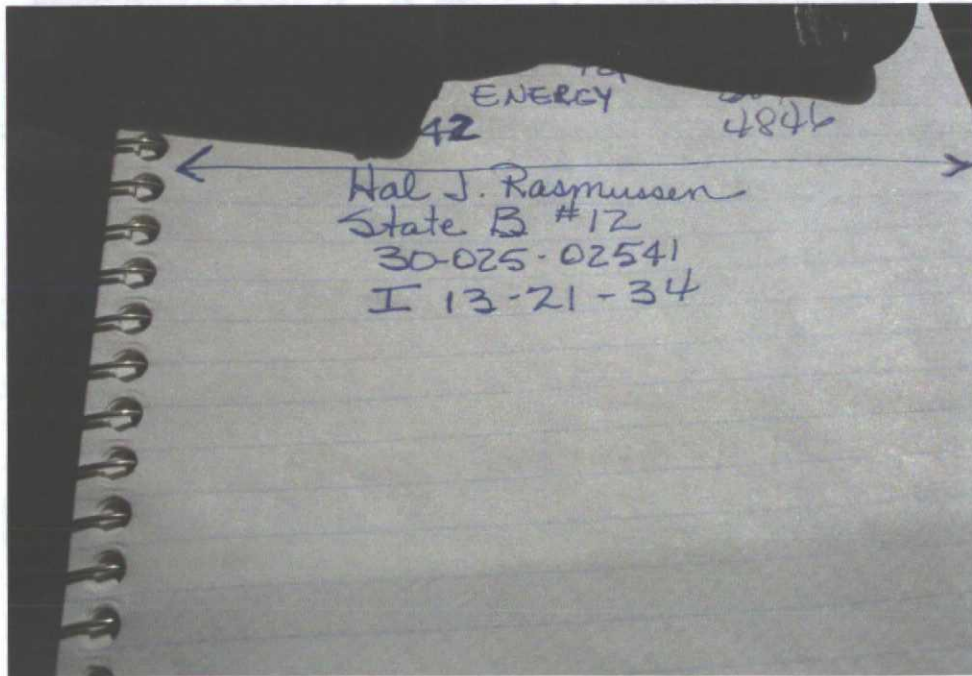 ENERGY
4846
42
Hal J. Rasmussen
State B #12
30-025-02541
I 13-21-34